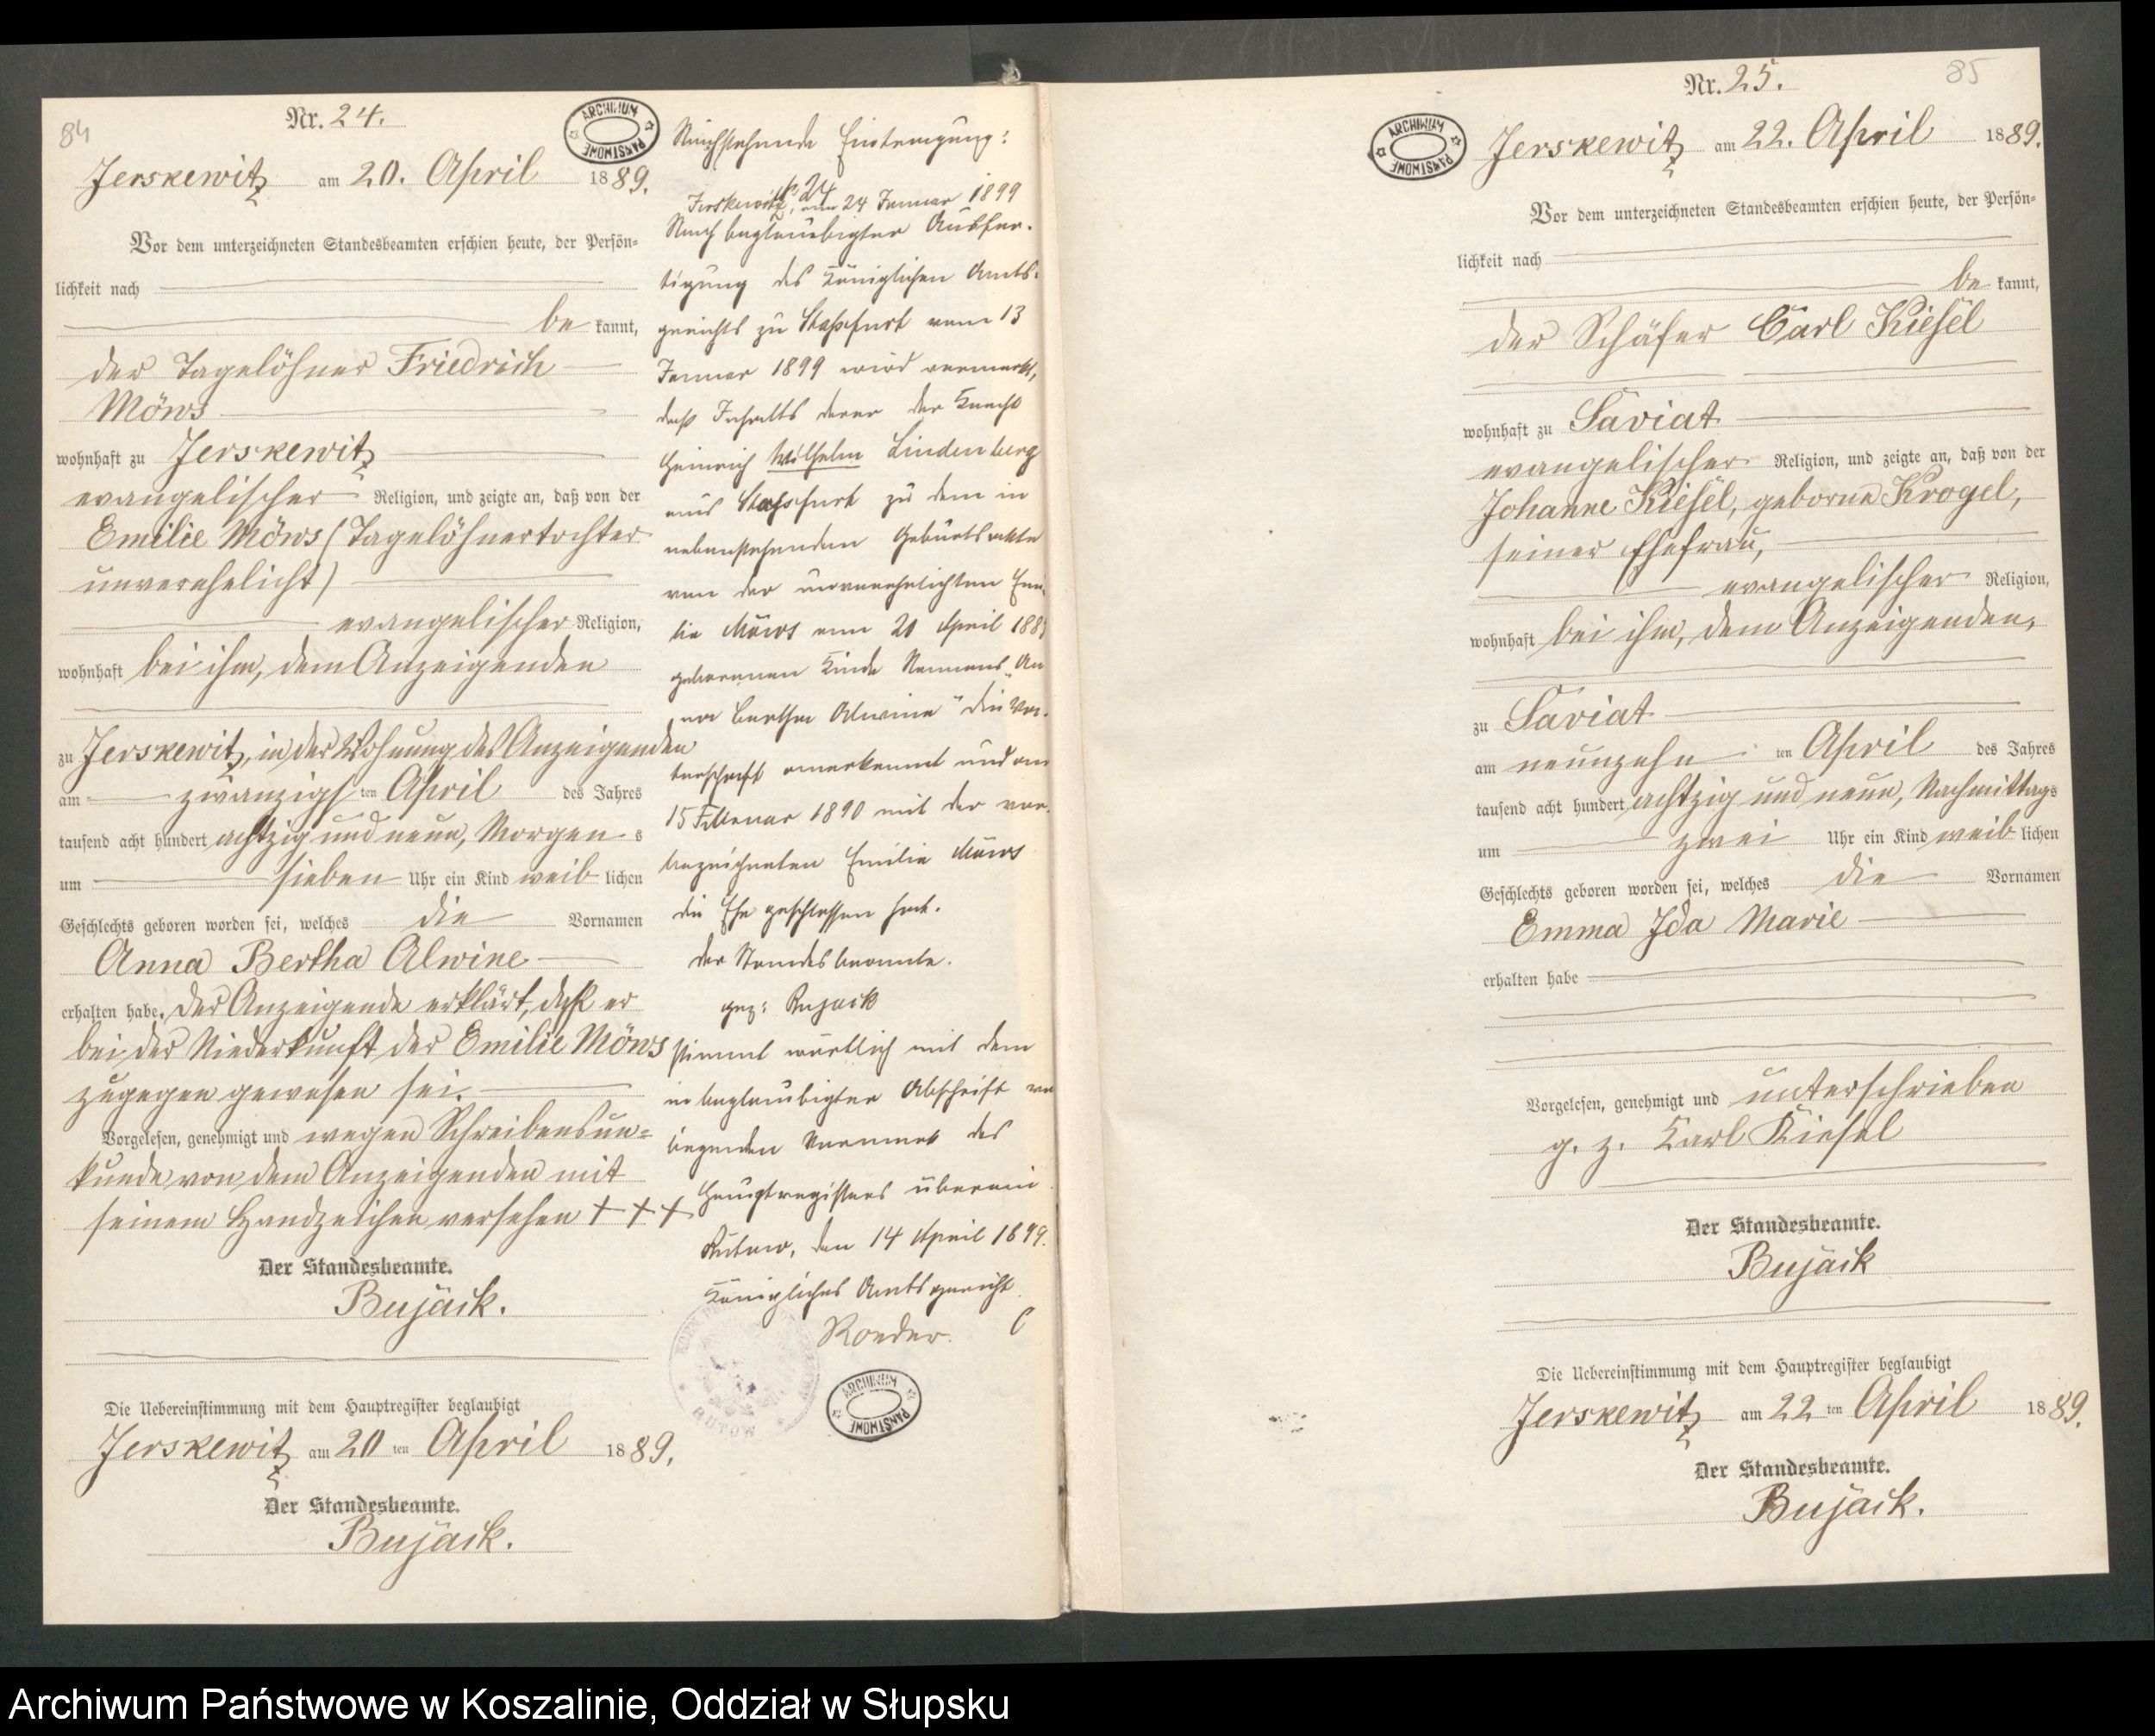 84
Nr. 24.
ARCHIWUM PAŃSTWOWE
Jerskewitz am 20. April 1889.
Vor dem unterzeichneten Standesbeamten erschien heute, der Persön-
lichkeit nach
be kannt,
der Tagelöhner Friedrich
Möws
wohnhaft zu Jerskewitz
evangelischer Religion, und zeigte an, daß von der
Emilie Möws (Tagelöhnertochter
unverehelicht)
evangelischer Religion,
wohnhaft bei ihm, dem Anzeigenden
zu Jerskewitz, in der Wohnung des Anzeigenden
am zwanzigs ten April des Jahres
tausend acht hundert achtzig und neun, Morgen s
um sieben Uhr ein Kind weib lichen
Geschlechts geboren worden sei, welches die Vornamen
Anna Bertha Alwine
erhalten habe. Der Anzeigende erklärt, daß er
bei der Niederkunft der Emilie Möws
zugegen gewesen sei.
Vorgelesen, genehmigt und wegen Schreibensun=
kunde von dem Anzeigenden mit
seinem Handzeichen versehen + + +
Der Standesbeamte.
Bujack.
Die Uebereinstimmung mit dem Hauptregister beglaubigt
Jerskewitz am 20 ten April 1889.
Der Standesbeamte.
Bujack.
Nachstehende Eintragung:
№ 24
Jerskewitz, am 24 Januar 1899
Nach beglaubigter Ausfer-
tigung des Königlichen Amts-
gerichts zu Staßfurt vom 13
Januar 1899 wird vermerkt,
daß Inhalts derer der Knecht
Heinrich Wilhelm Lindenberg
aus Stassfurt zu dem in
nebenstehenden Geburtsakte
von der unverehelichten Emi-
lie Möws am 20 April 188
geborenen Kinde Namens „An
na Bertha Alwine“ die Va-
terschaft anerkannt und am
15 Februar 1890 mit der vor-
bezeichneten Emilie Möws
die Ehe geschlossen hat.
Der Standesbeamte.
gez: Bujack
stimmt wörtlich mit dem
in beglaubigter Abschrift vor
liegenden Vermerk des
Hauptregisters überein
Bütow, den 14 April 1899.
Königliches Amtsgericht.
Roeder.
BÜTOW
ARCHIWUM PAŃSTWOWE
85
Nr. 25.
ARCHIWUM PAŃSTWOWE
Jerskewitz am 22. April 1889.
Vor dem unterzeichneten Standesbeamten erschien heute, der Persön-
lichkeit nach
be kannt,
der Schäfer Carl Kiesel
wohnhaft zu Saviat
evangelischer Religion, und zeigte an, daß von der
Johanne Kiesel, geborne Krogel,
seiner Ehefrau,
evangelischer Religion,
wohnhaft bei ihm, dem Anzeigenden,
zu Saviat
am neunzehn ten April des Jahres
tausend acht hundert achtzig und neun, Nachmittags
um zwei Uhr ein Kind weib lichen
Geschlechts geboren worden sei, welches die Vornamen
Emma Ida Marie
erhalten habe
Vorgelesen, genehmigt und unterschrieben
g. z. Karl Kiesel
Der Standesbeamte.
Bujack
Die Uebereinstimmung mit dem Hauptregister beglaubigt
Jerskewitz am 22 ten April 1889.
Der Standesbeamte.
Bujack.
Archiwum Państwowe w Koszalinie, Oddział w Słupsku